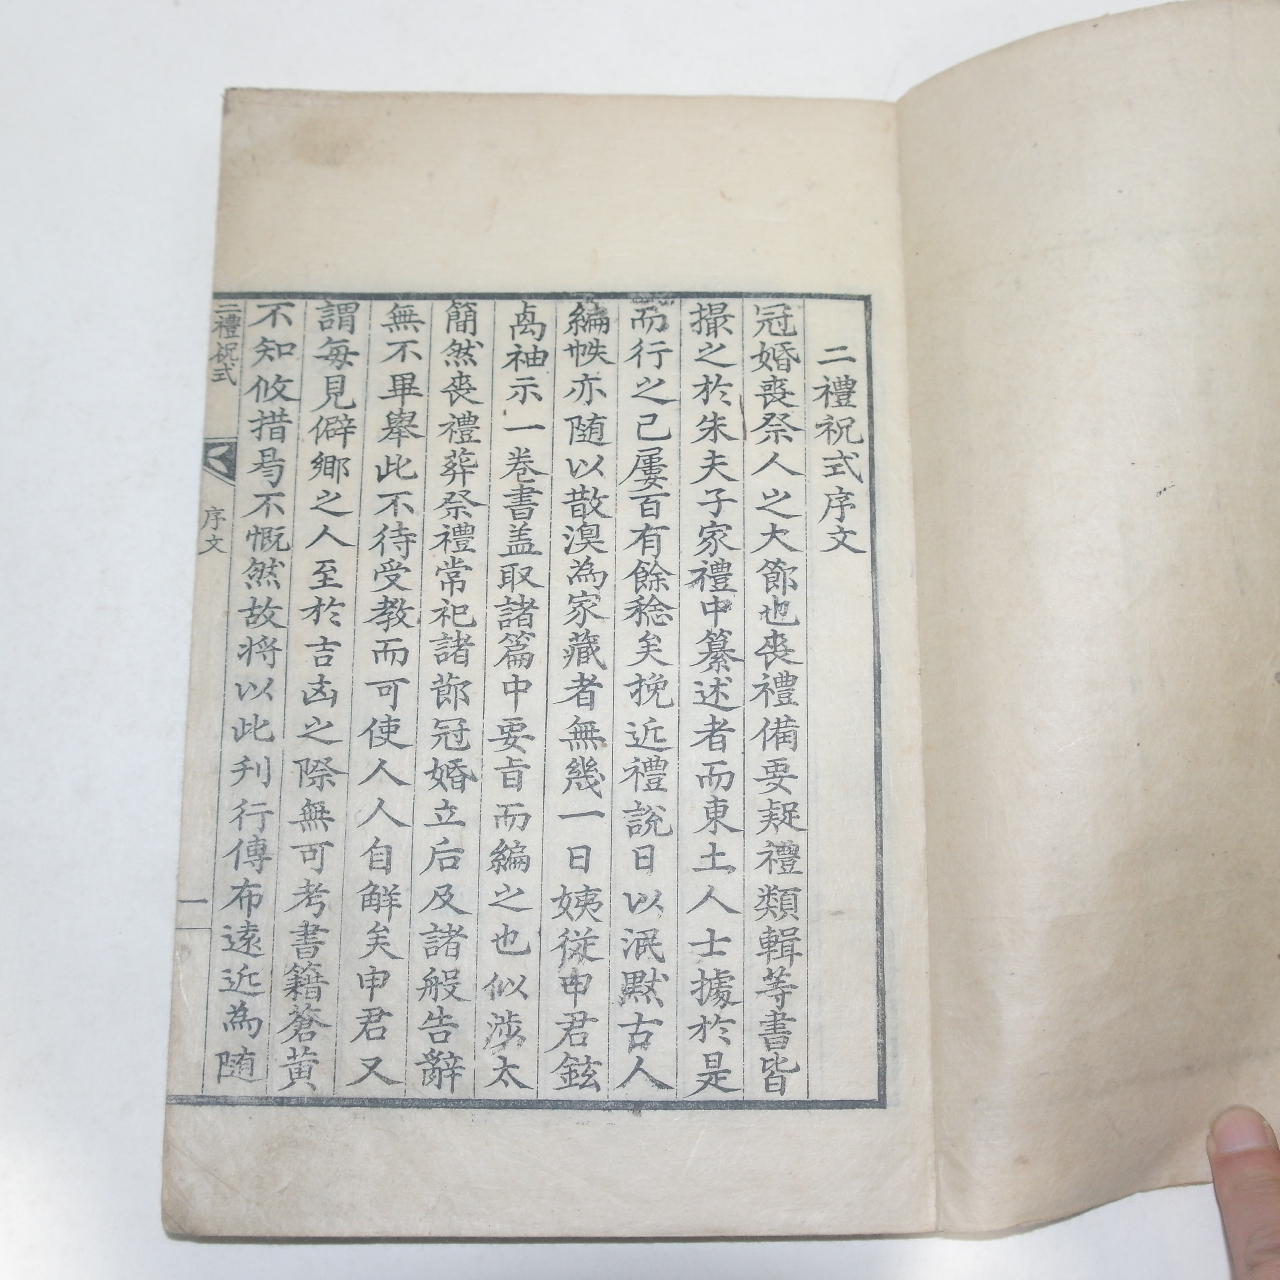 二禮祝式序文
冠婚喪祭人之大節也喪禮備要疑禮類輯等書皆
撮之於朱夫子家禮中纂述者而東土人士據於是
而行之已屢百有餘稔矣挽近禮說日以泯默古人
編帙亦随以散漠為家藏者無幾一日姨従申君鉉
卨袖示一卷書盖取諸篇中要旨而編之也似涉太
簡然喪禮葬祭禮常祀諸節冠婚立后及諸般告辭
無不畢舉此不待受教而可使人人自解矣申君又
謂每見僻鄉之人至於吉凶之際無可考書籍蒼黃
不知攸措曷不慨然故將以此刋行傳布遠近為随
二禮祝式
序文
一